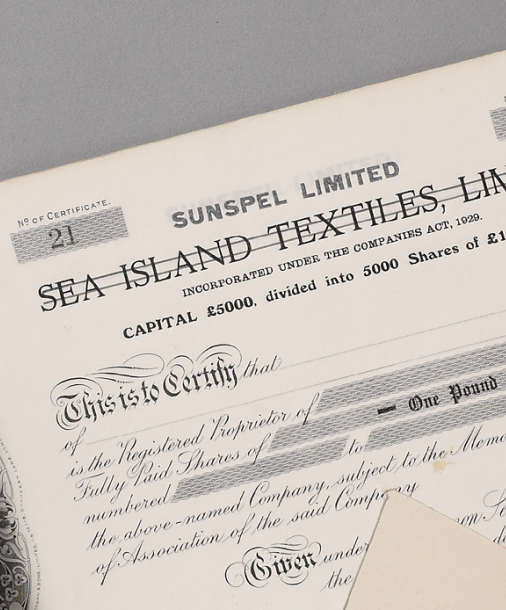 Nº OF CERTIFICATE.
21
SUNSPEL LIMITED
SEA ISLAND TEXTILES, LIM
INCORPORATED UNDER THE COMPANIES ACT, 1929.
CAPITAL £5000, divided into 5000 Shares of £1
This is to Certify that
of
is the Registered Proprietor of
Fully Paid Shares of — One Pound
numbered to
the above-named Company, subject to the Memo
of Association of the said Company
Given under
the